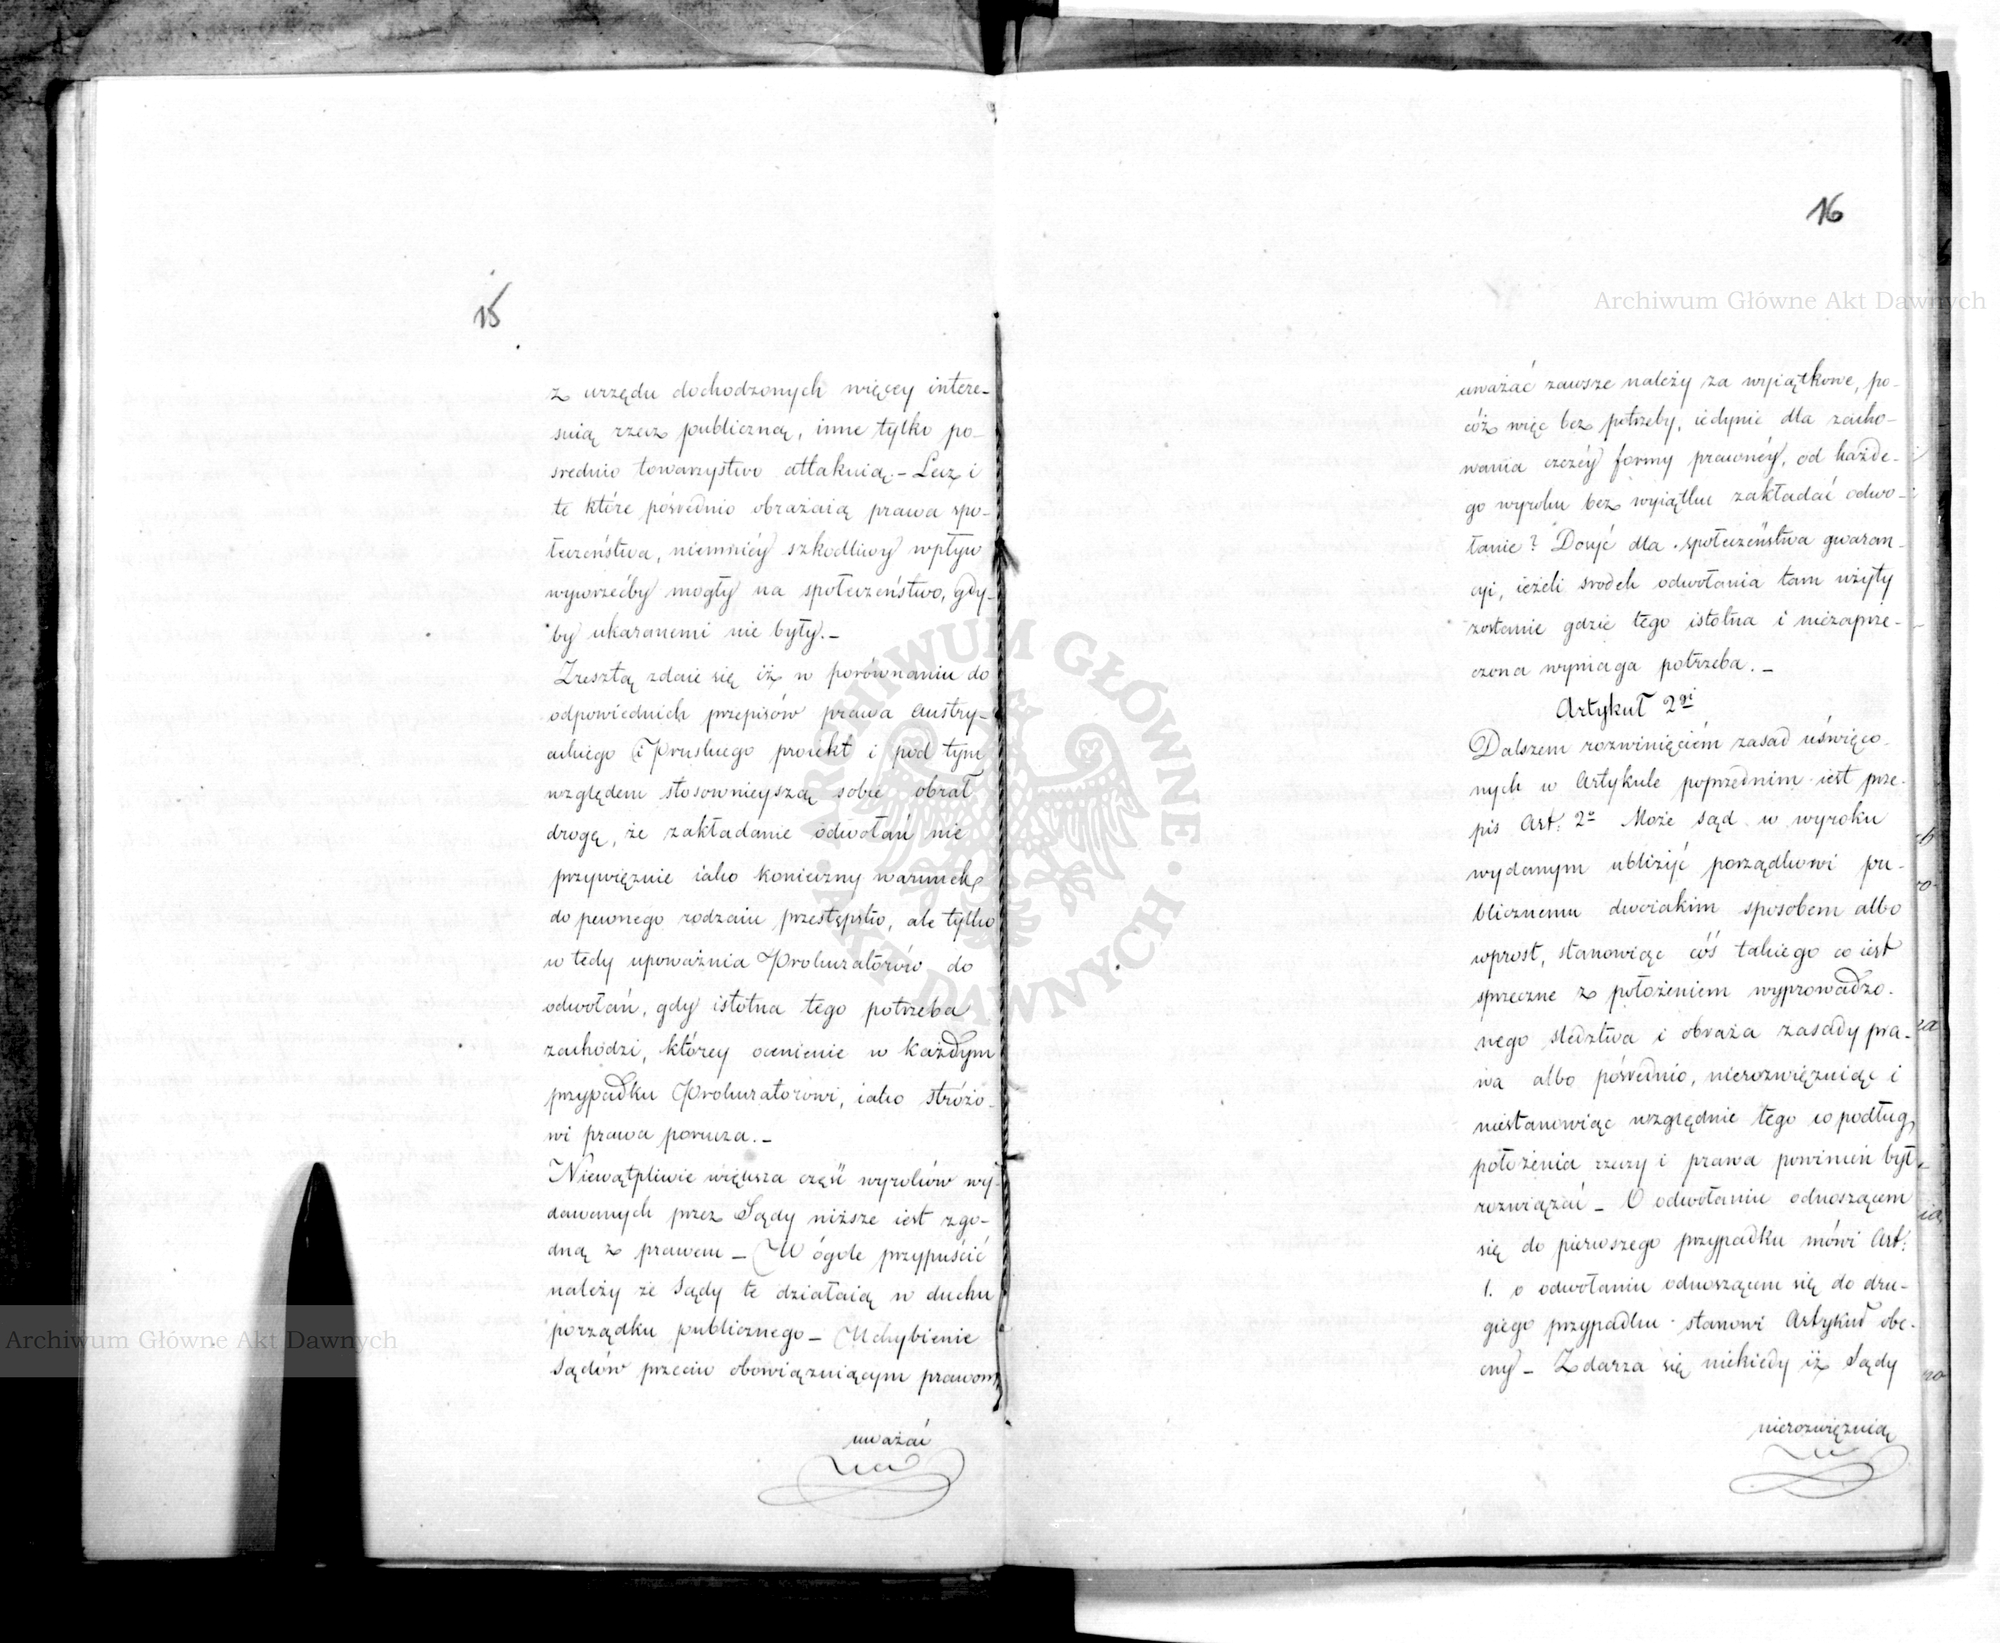 15
z urzędu dochodzonych więcey intere-
suią rzecz publiczną, inne tylko po-
srednio towarzystwo attakuią. - Lecz i
te które pósrednio obrażaią prawa spo-
łeczeństwa, niemniéy szkodliwy wpływ
wywrzećby mogły na społeczeństwo, gdy-
by ukaranemi nie były. -
Zresztą zdaie się iż w porównaniu do
odpowiednich przepisów prawa Austry-
ackiego i Pruskiego proiekt i pod tym
względem stosownieyszą sobie obrał
drogę, że zakładanie odwołań nie
przywięzuie iako konieczny warunek
do pewnego rodzaiu przestępstw, ale tylko
w tedy upoważnia Prokuratorów do
odwołań, gdy istotna tego potrzeba
zachodzi, którey ocenienie w każdym
przypadku Prokuratorowi, iako stróżo-
wi prawa porucza. -
Niewątpliwie większa część wyroków wy-
dawanych przez Sądy niższe iest zgo-
dną z prawem - W ogóle przypuścić
należy że Sądy te działaią w duchu
porządku publicznego - Uchybienie
Sądów przeciw obowiązuiącym prawom
uważać
16
uważać zawsze należy za wyiątkowe, po-
cóż więc bez potrzeby, iedynie dla zacho-
wania czczéy formy prawnéy, od każde-
go wyroku bez wyiątku zakładać odwo-
łanie? Dosyć dla społeczeństwa gwaran-
cyi, ieżeli srodek odwołania tam użyty
zostanie gdzie tego istotna i niezaprze-
czona wymaga potrzeba. -
Artykuł 2gi
Dalszem rozwinięciem zasad uświęco-
nych w Artykule poprzednim iest prze-
pis Art: 2o Może sąd w wyroku
wydanym ubliżyć porządkowi pu-
blicznemu dwoiakim sposobem albo
wprost, stanowiąc cóś takiego co iest
sprzeczne z położeniem wyprowadzo-
nego sledztwa i obraża zasady pra-
wa albo pósrednio, nierozwięzuiąc i
niestanowiąc względnie tego co podług
położenia rzeczy i prawa powinien był
rozwiązać - O odwołaniu odnoszącem
się do pierwszego przypadku mówi Art:
1. o odwołaniu odnoszącem się do dru-
giego przypadku stanowi Artykuł obe-
cny - Zdarza się niekiedy iż Sądy
nierozwięzuią
Archiwum Główne Akt Dawnych
Archiwum Główne Akt Dawnych
ARCHIWUM GŁÓWNE AKT DAWNYCH